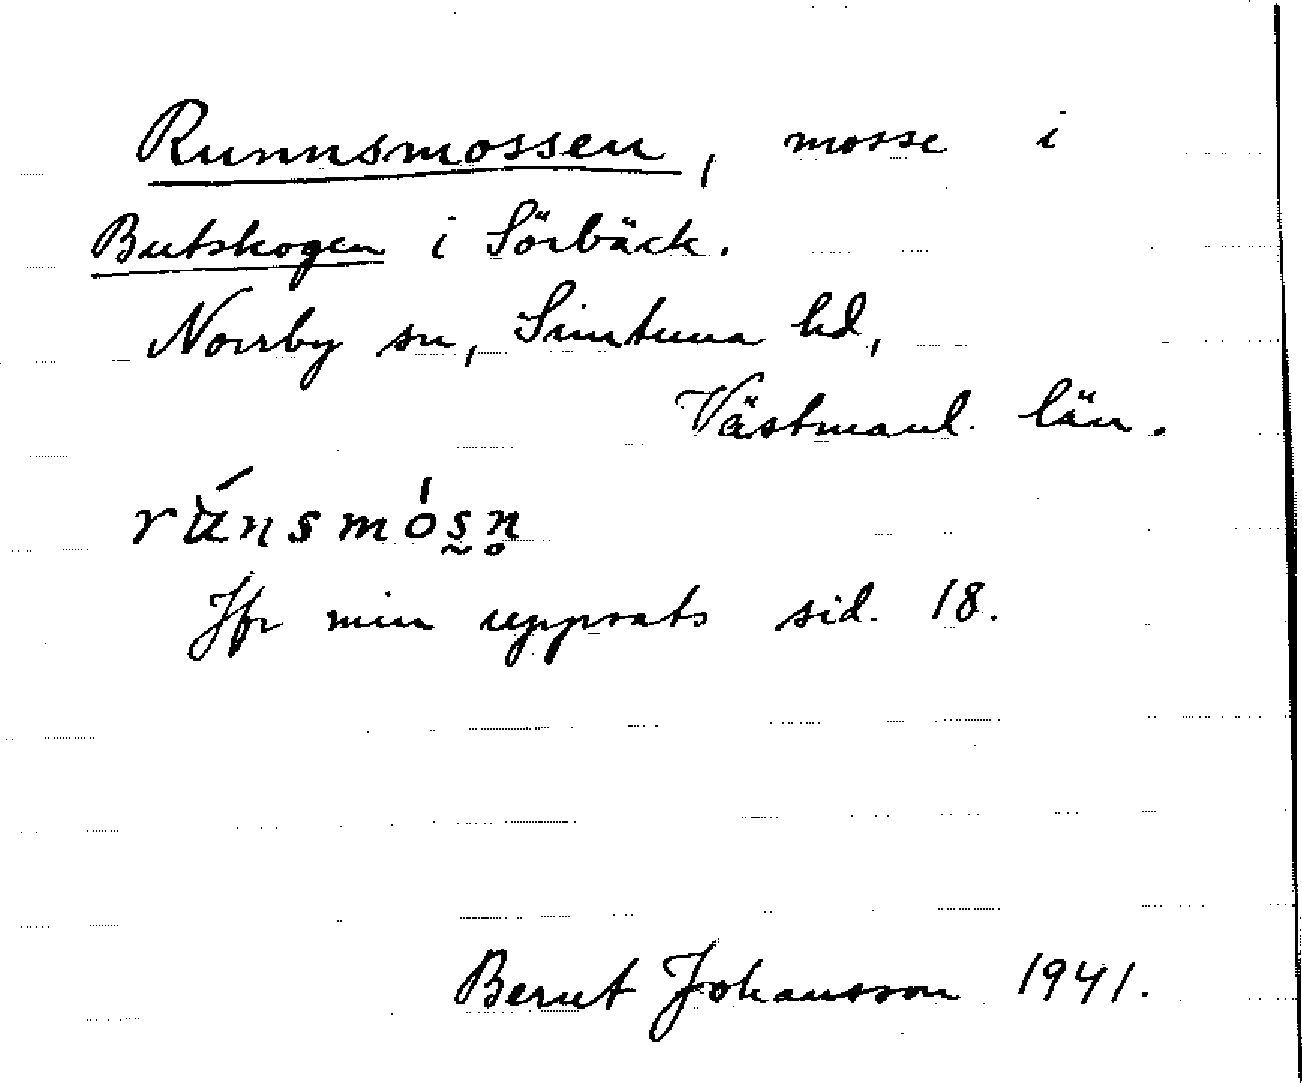 Runnsmossen, mosse i
Butskogen i Sörbäck.
Norrby sn, Simtuna hd,
Västmanl. län.
rúnsmósn̥
Jfr min uppsats sid. 18.
Bernt Johansson 1941.